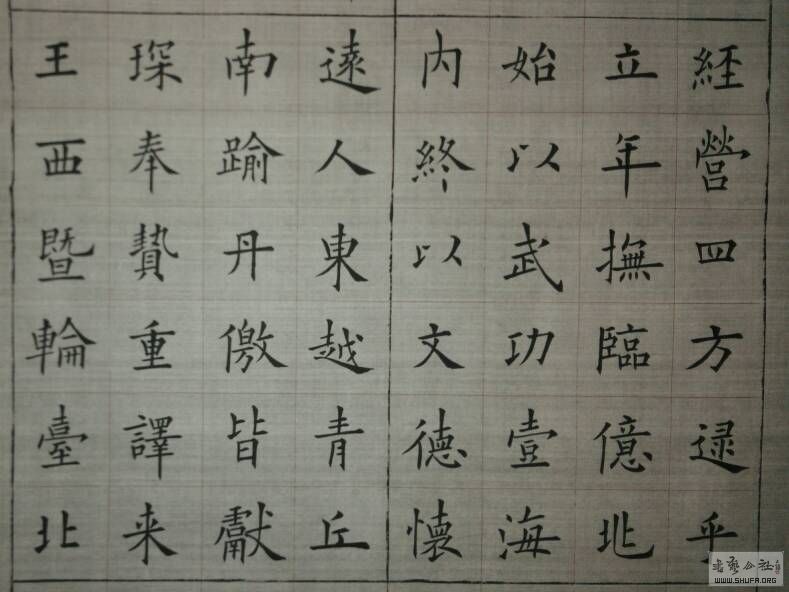 經營四方逯乎
立年撫臨億兆
始以武功壹海
内終以文德懷
遠人東越青丘
南踰丹徼皆獻
琛奉贄重譯来
王西暨輪臺北
WWW.SHUFA.ORG